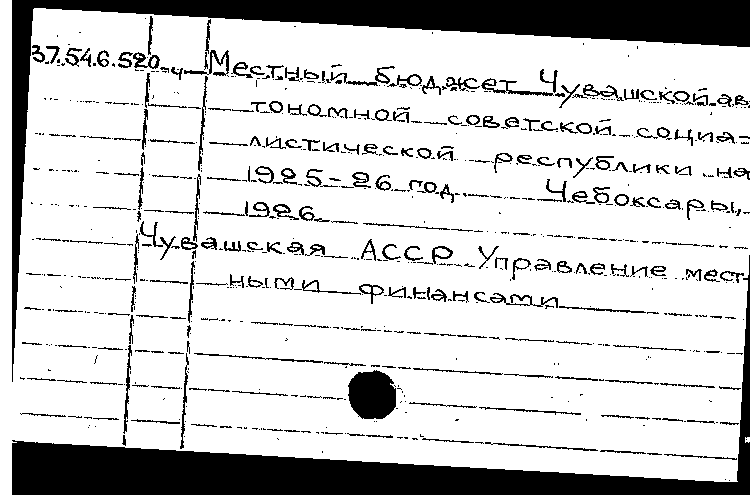 37.54.6.520.ч Местный бюджет Чувашской ав
тономной советской социа=
листической республики на
1925-26 год. Чебоксары,
1926.
Чувашская АССР. Управление мест-
ными финансами